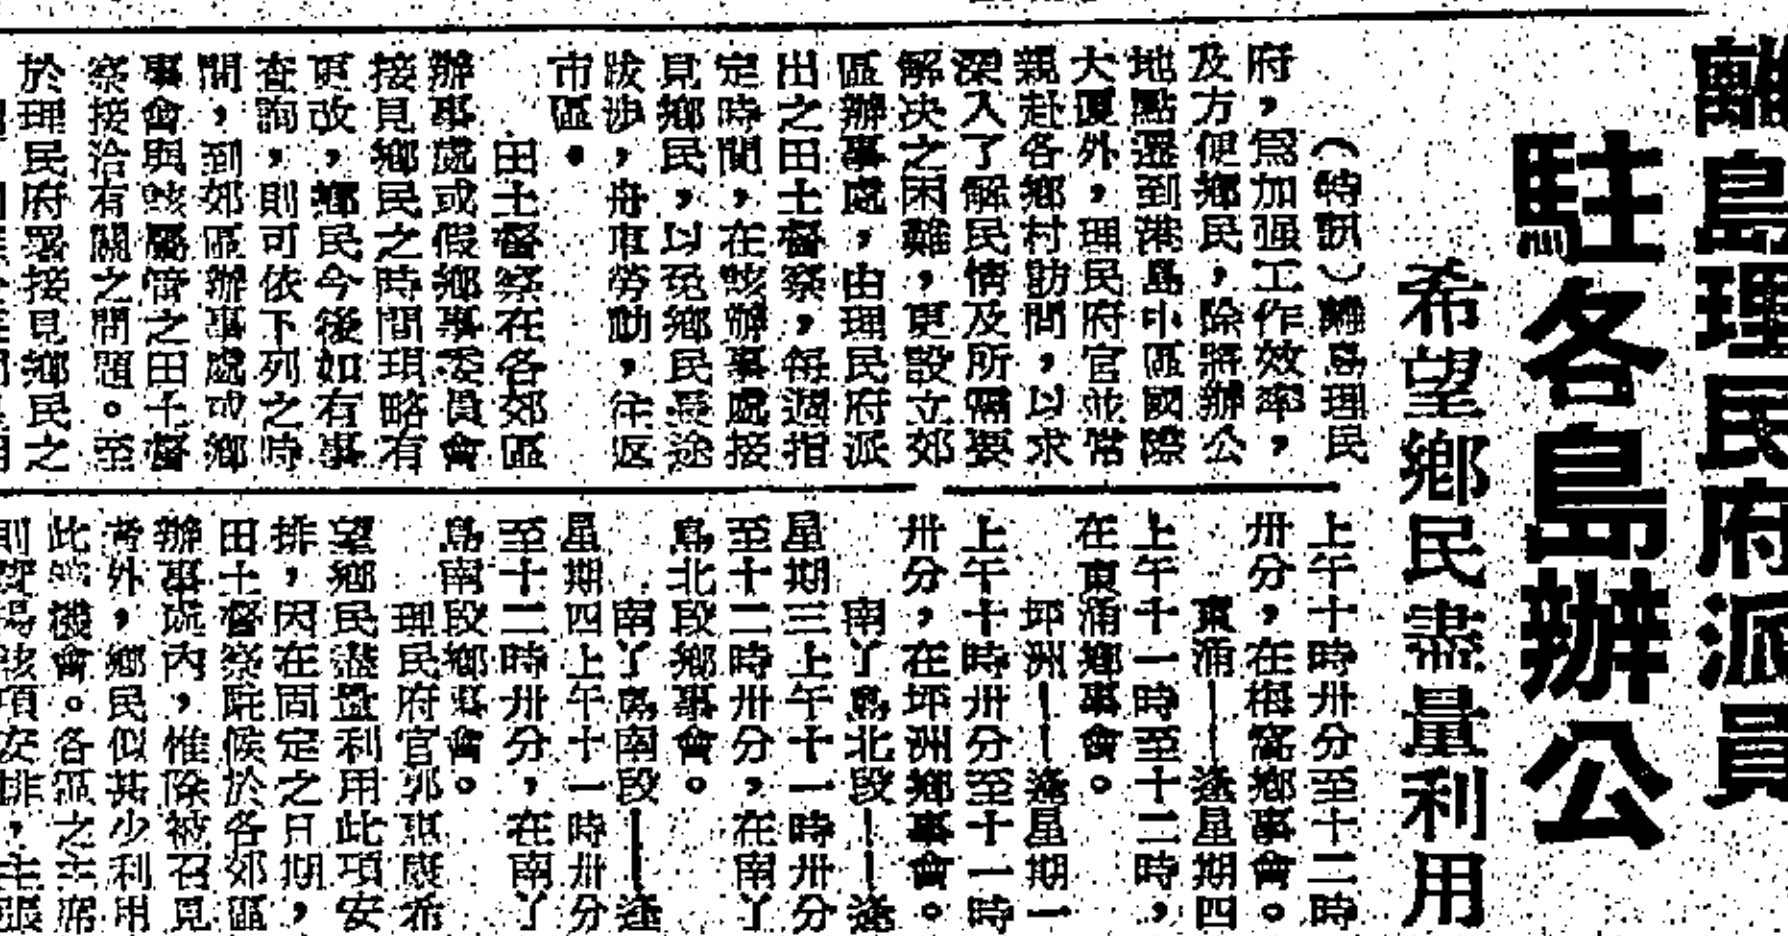 離島理民府派員
駐各島辦公
希望鄉民盡量利用
（特訊）離島理民
府，爲加强工作效率，
及方便鄉民，除將辦公
地點遷到港島中區國際
大厦外，理民府官並常
親赴各鄉村訪問，以求
深入了解民情及所需要
解决之困難，更設立郊
區辦事處，由理民府派
出之田土督察，每週指
定時間，在該辦事處接
見鄉民，以免鄉民長途
跋涉，舟車勞動，往返
市區。
田土督察在各郊區
辦事處或假鄉事委員會
接見鄉民之時間現略有
更改，鄉民今後如有事
查詢，則可依下列之時
間，到郊區辦事處或鄉
事會與該屬管之田土督
察接洽有關之問題。至
於理民府署接見鄉民之
上午十時卅分至十二時
卅分，在梅窩鄉事會。
東涌——逢星期四
上午十一時至十二時，
在東涌鄉事會。
坪洲——逢星期一
上午十時卅分至十一時
卅分，在坪洲鄉事會。
南丫島北段——逢
星期三上午十一時卅分
至十二時卅分，在南丫
島北段鄉事會。
南丫島南段——逢
星期四上午十一時卅分
至十二時卅分，在南丫
島南段鄉事會。
理民府官郭惠應希
望鄉民盡量利用此項安
排，因在固定之日期，
田土督察駐候於各郊區
辦事處內，惟除被召見
者外，鄉民似甚少利用
此項機會。各區之主席
則 該項安排，主張